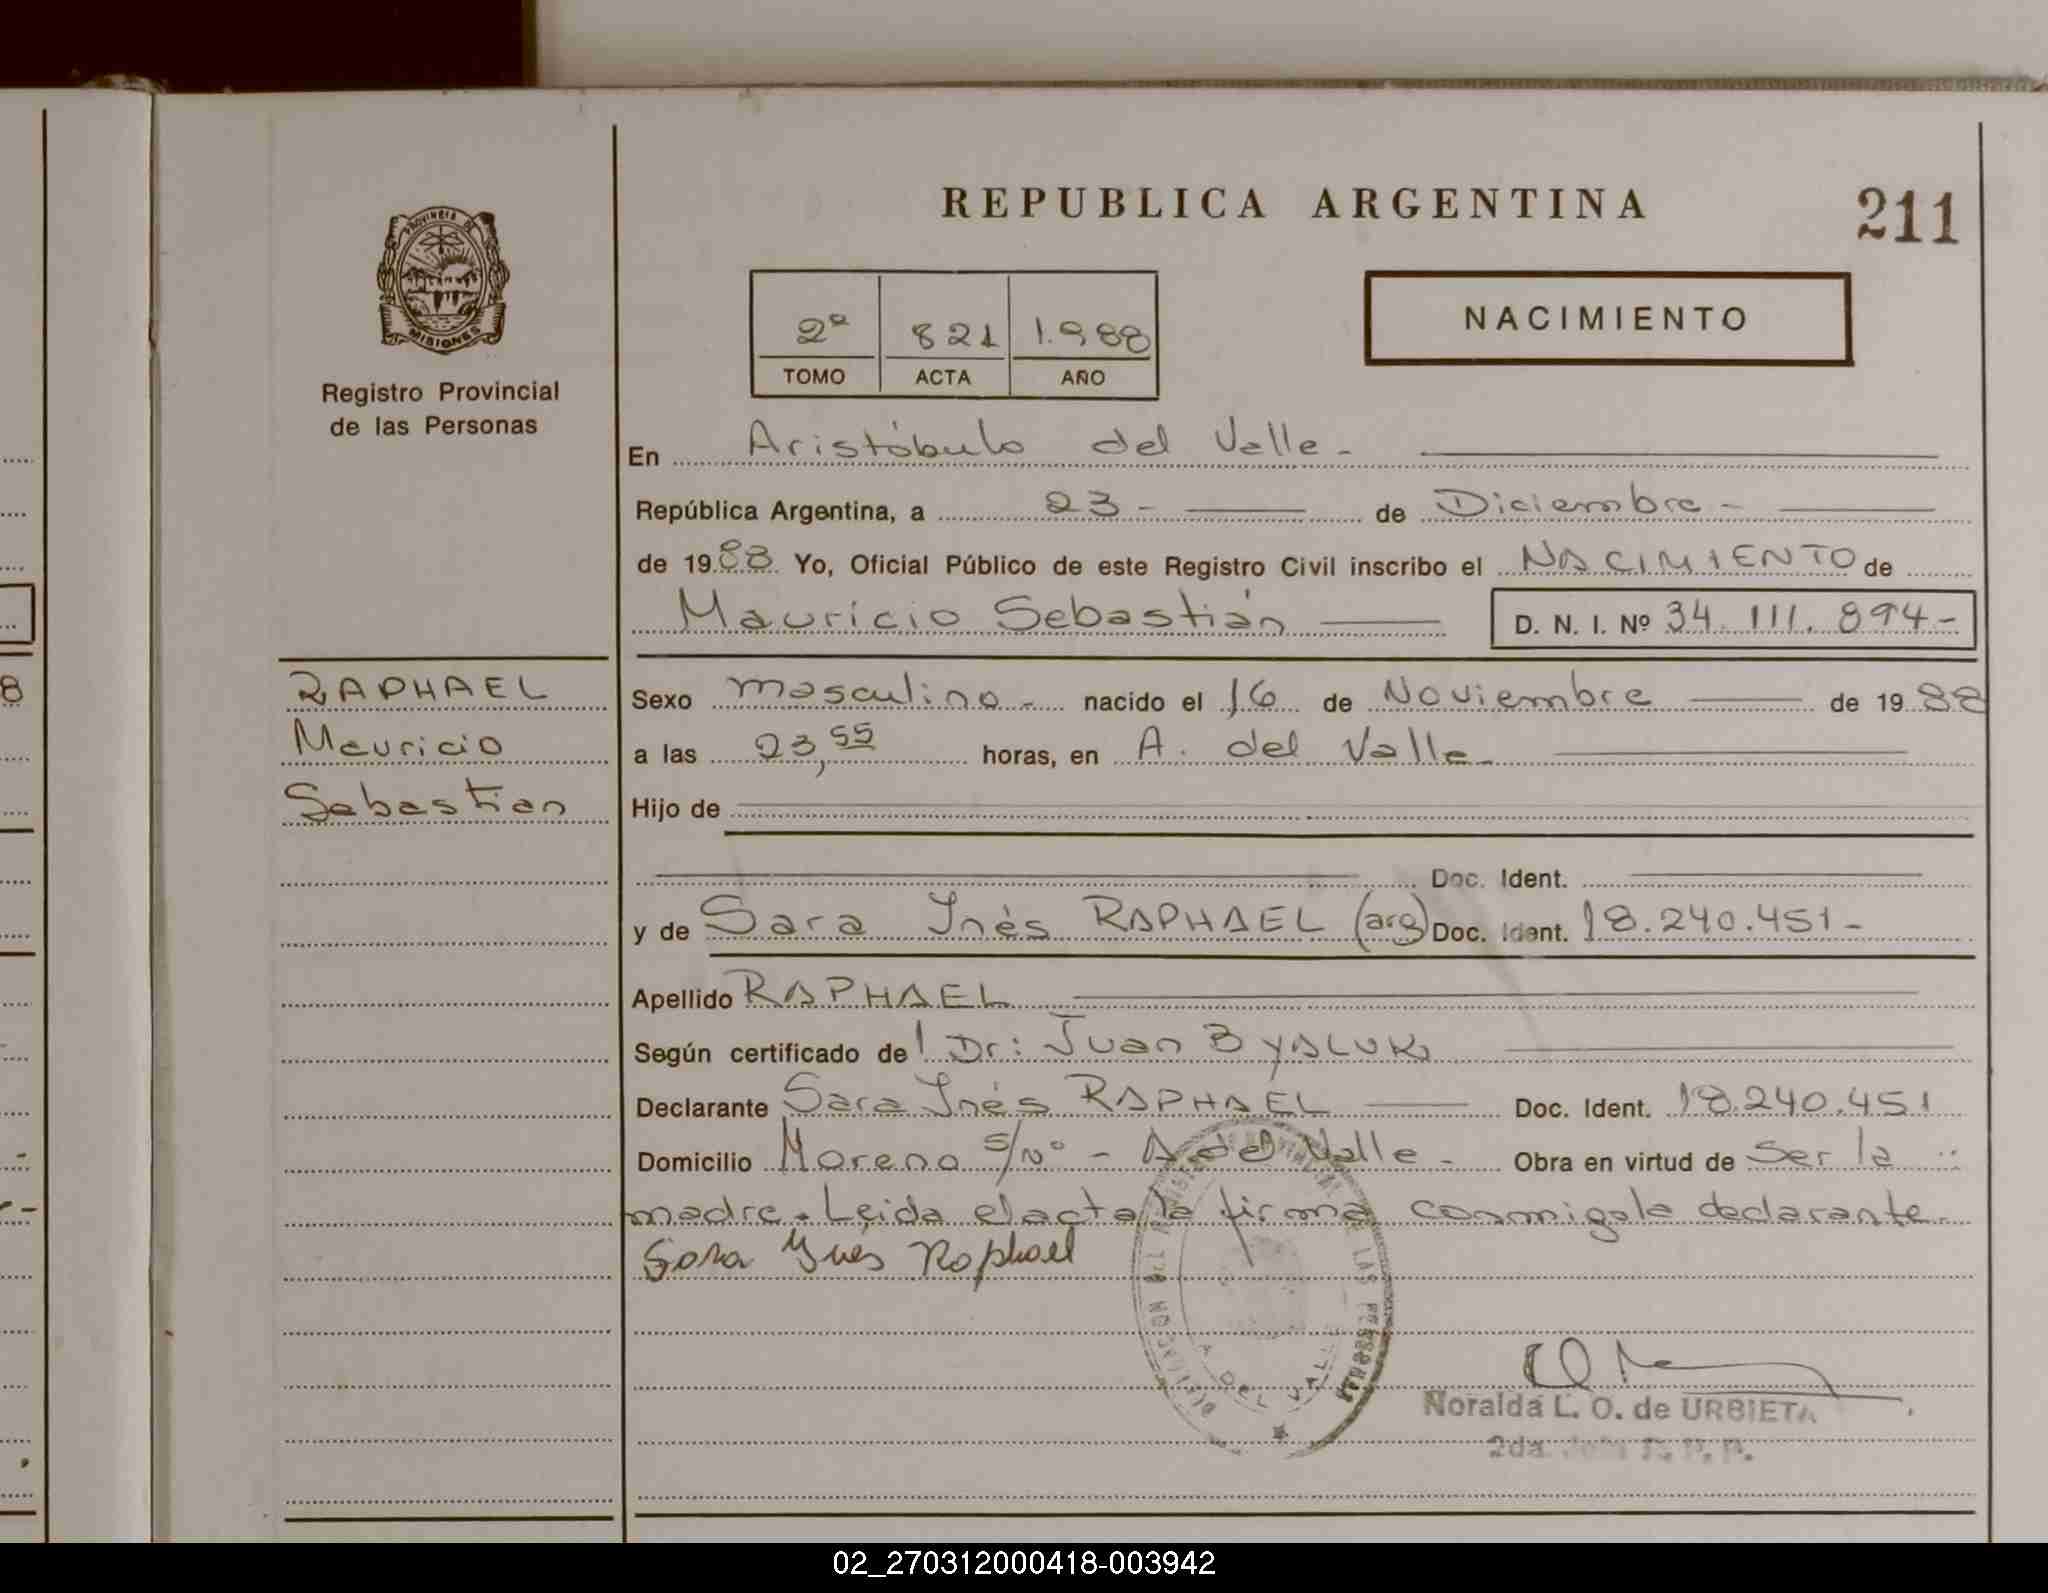 REPUBLICA ARGENTINA
211
PROVINCIA DE
MISIONES
Registro Provincial
de las Personas
2º 821 1.988
TOMO ACTA AÑO
NACIMIENTO
En Aristóbulo del Valle -
República Argentina, a 23 - de Diciembre -
de 1988 Yo, Oficial Público de este Registro Civil inscribo el NACIMIENTO de
Mauricio Sebastián D. N. I. Nº 34.111.894-
RAPHAEL
Mauricio
Sebastian
Sexo masculino - nacido el 16 de Noviembre de 1988
a las 23,55 horas, en A. del Valle -
Hijo de
Doc. Ident.
y de Sara Inés RAPHAEL (arg) Doc. Ident. 18.240.451 -
Apellido RAPHAEL
Según certificado del Dr: Juan BYALUK
Declarante Sara Inés RAPHAEL Doc. Ident. 18.240.451
Domicilio Moreno s/nº - A del Valle - Obra en virtud de Ser la
madre. Leida el acta la firma conmigo la declarante.
Sara Ynes Raphael
DELEGACION DEL REGISTRO PROVINCIAL DE LAS PERSONAS
A DEL VALLE
Noralda L. O. de URBIETA
2da. R. P. P.
8
02_270312000418-003942